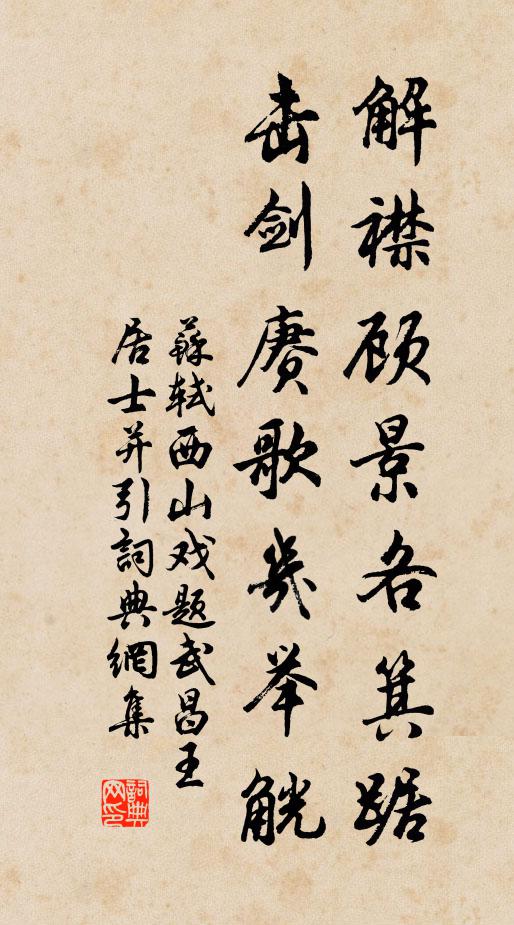 解襟顾景各箕踞
击剑赓歌几举觥
蘇轼西山戏题武昌王
居士并引詞典網集
詞典网印